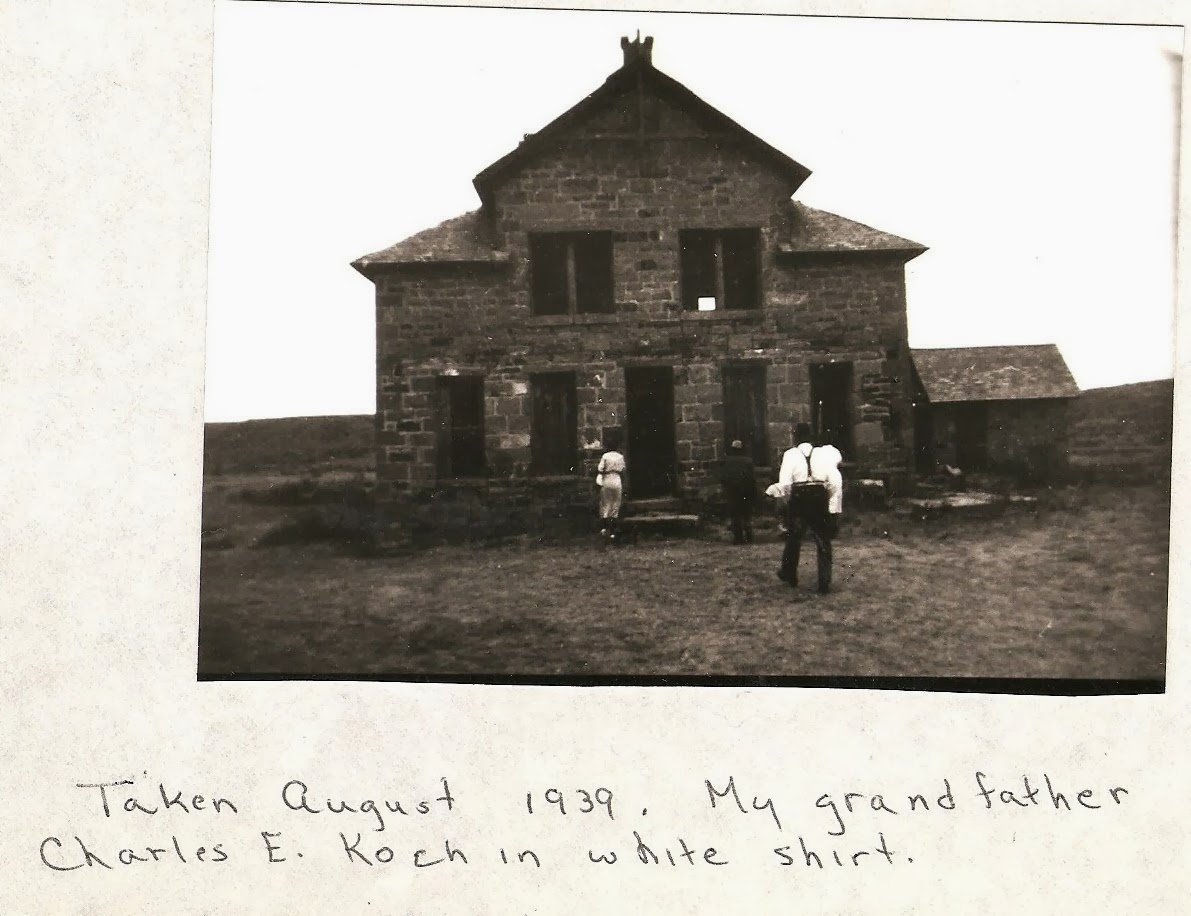 Taken August 1939. My grandfather
Charles E. Koch in white shirt.